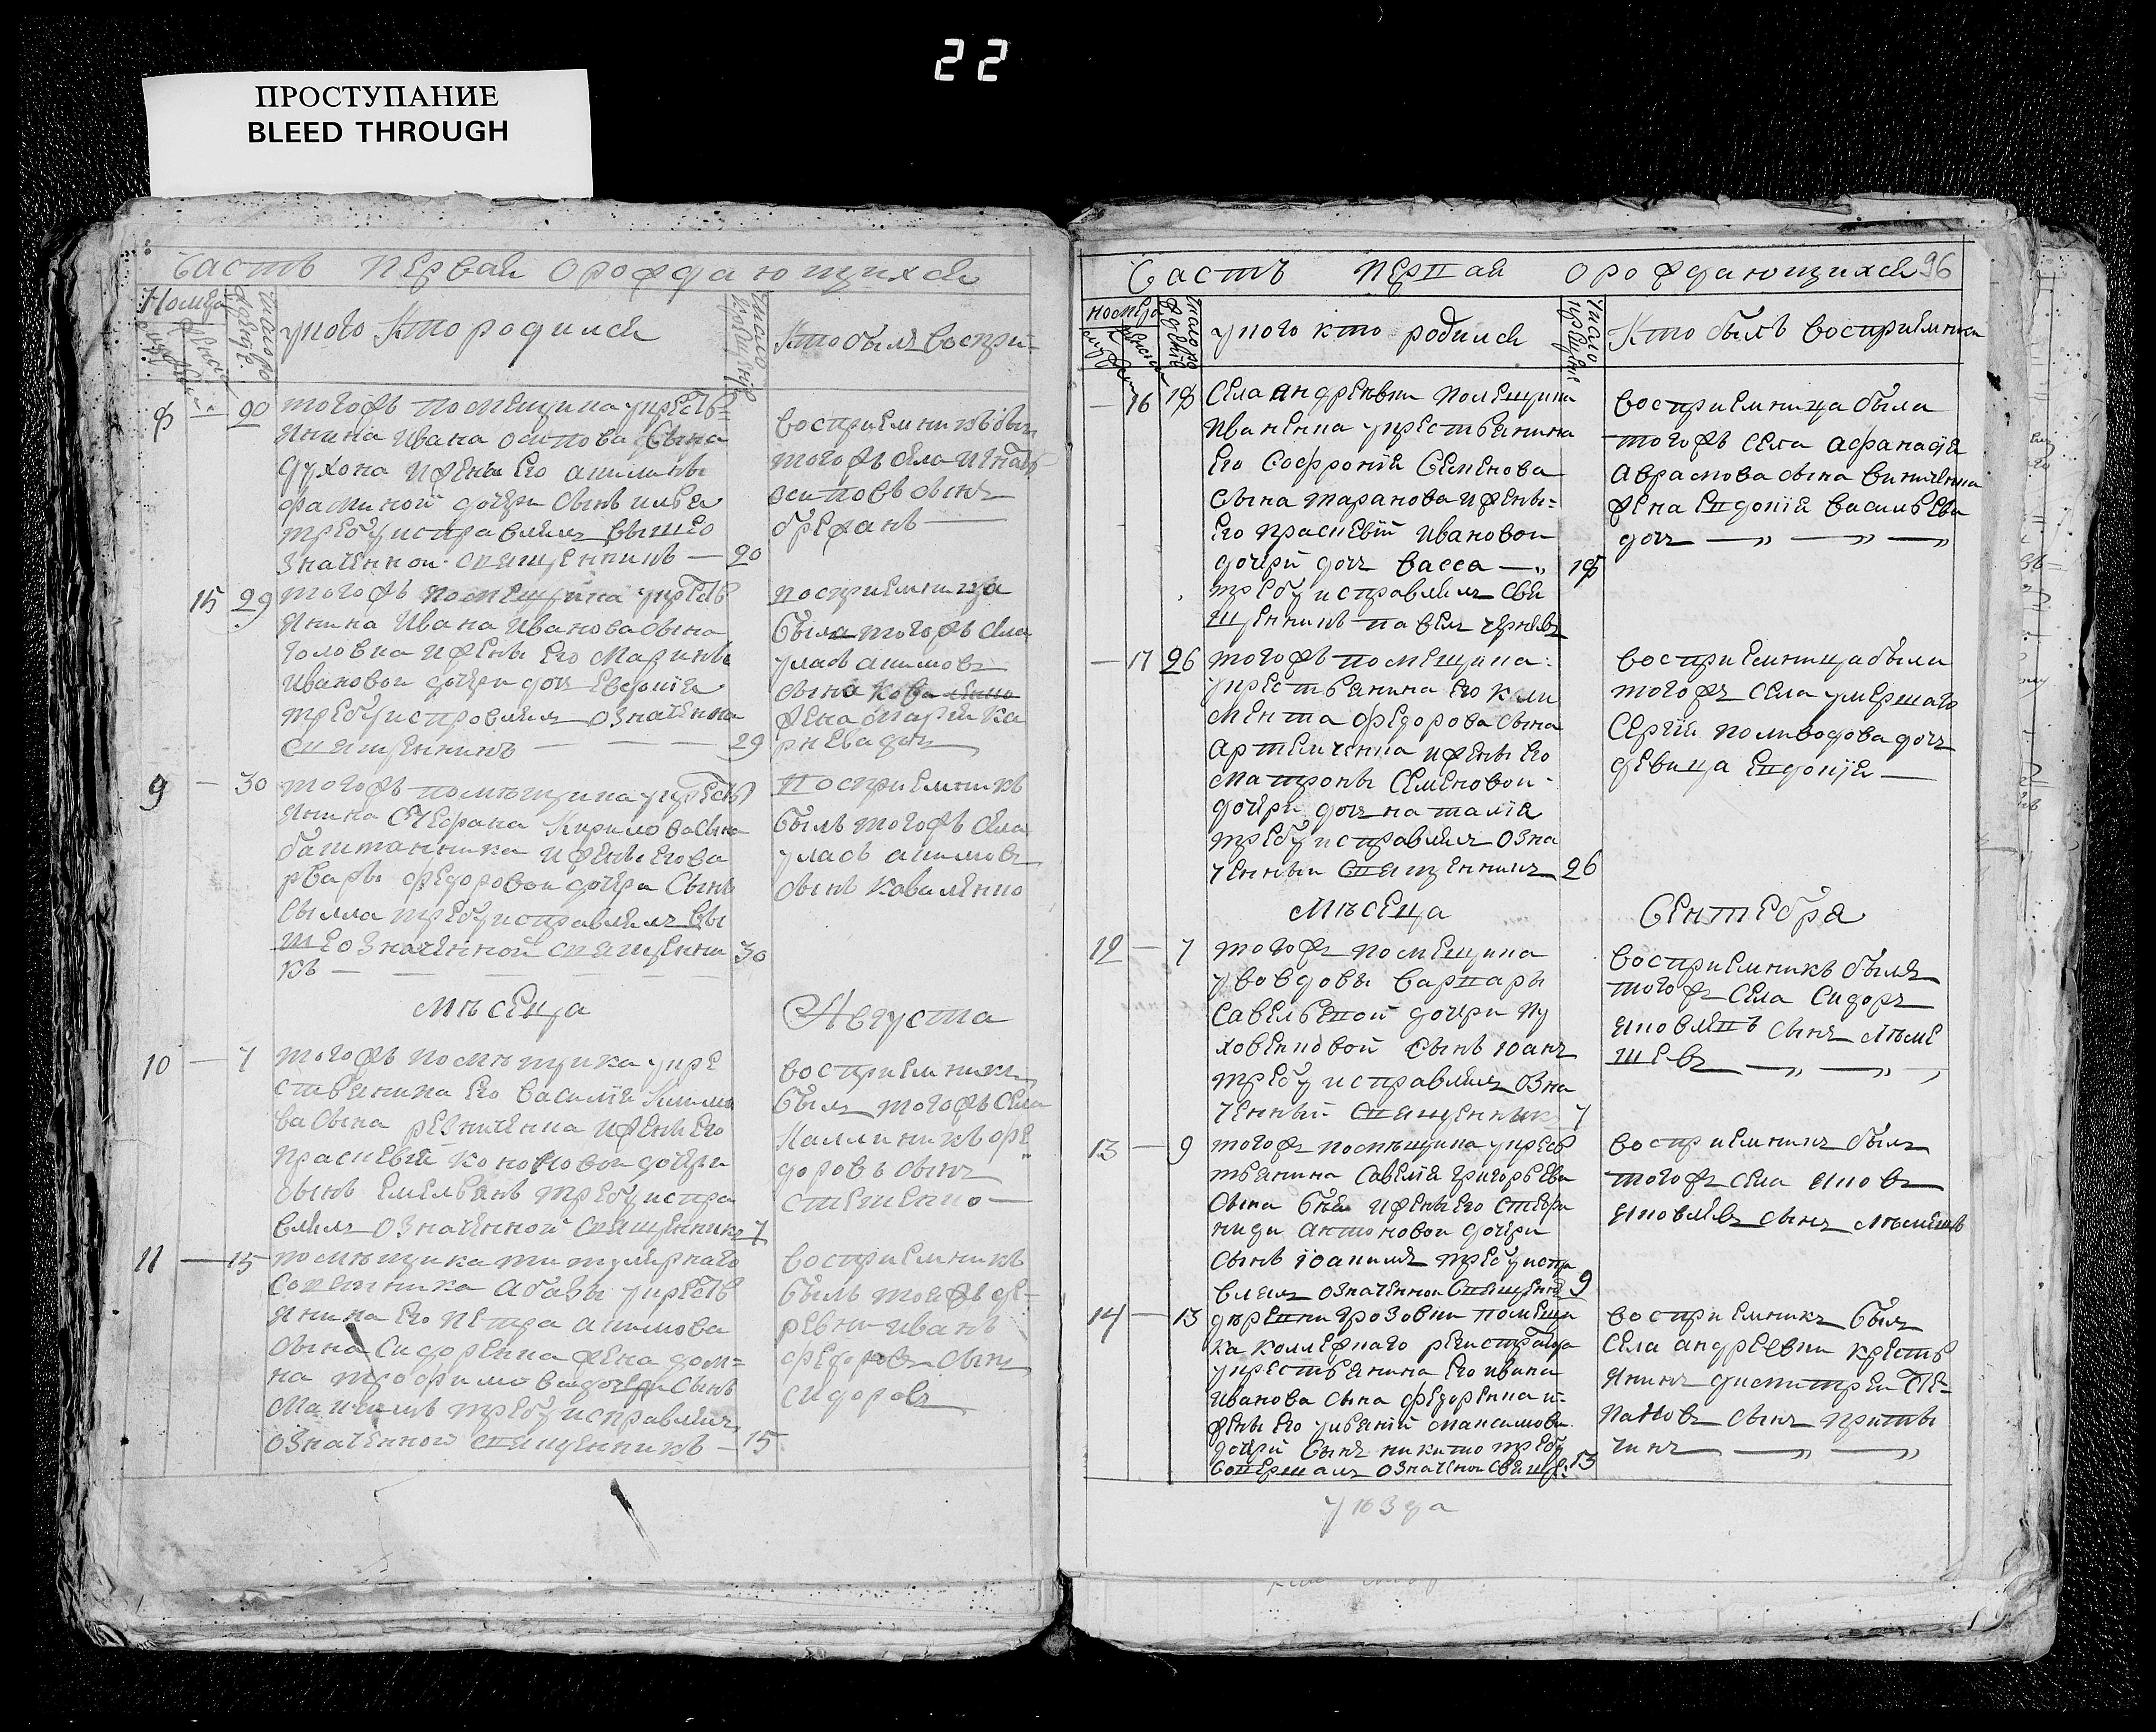 22
ПРОСТУПАНИЕ
BLEED THROUGH
Часть первая о рождающихся
Номера
число рождения
у кого кто родился
число крещения
Кто был воспри-
8 20
тогожъ помещика крестъ-
янина Ивана осипова сына
духона и жены его акилины
фаминой дочери сынъ илья
требу исправлялъ выше о
значенной священникъ — 20
восприемникъ был
тогожъ села игнатъ
осиповъ сынъ
брежанъ —
15 29
тогожъ помещика крестъ
янина Ивана Иванова сына
головка и жены его Марины
Ивановой дочери дочь Евдокия
требу исправлялъ означенной
священникъ — — — 29
восприемница
была тогожъ села
уласа акимова
сына кова
жена мария ка
рнева дочь
9 — 30
тогожъ помѣщика крестъ
янина Стефана Кирилова сына
баштанника и жены его ва
рвары федоровой дочери сынъ
требу исправлялъ вы
ше означенной священни
къ — — — — 30
восприемникъ
былъ тогожъ села
уласъ акимовъ
сынъ коваленко
Мѣсеца Августа
10 — 7
тогожъ помѣщика кре
стьянина его василия климо
ва сына резниченка и жены его
праскевии кононовой дочери
сынъ емельянъ требу испра
влялъ означенной священникъ 7
восприемникъ
былъ тогожъ села
каллиникъ фе
доровъ сынъ
степенко —
11 — 15
помѣщика титулярнаго
советника Абазы крестъ
янина его петра акимова
сына Сидоренка жена дом-
на трофимова дочери сынъ
Макимъ требу исправлялъ
означенной священникъ — 15
восприемникъ
былъ тогожъ де-
ревни иванъ
федоровъ сынъ
сидоровъ
Часть первая о рождающихся 96
номера
число рождения
у кого кто родился
число крещения
Кто былъ восприемникъ
— 16 18
Села андреевки помещика
Иваненка крестьянина
его Софрония Семенова
сына таранова и жены-
его праскевии Ивановой
дочери дочь васса — „ 18
требу исправлялъ свя
щенникъ павелъ
восприемница была
тогожъ села афанасия
аврамова сына
жена евдокия васильева
дочь — „ — „ — „
— 17 26
тогожъ помещика
крестьянина его кли
мента федорова сына
артемченка и жены его
матроны Семеновой
дочери дочь наталия
требу исправлялъ озна
ченный священникъ 26
восприемница была
тогожъ села умершаго
Сергия поливодова дочь
девица евдокия —
Мѣсеца Сентебра
12 — 7
тогожъ помещика
у вовдовы варвары
Савельевой дочери пу
ховенковой сынъ Іоанъ
требу исправлялъ озна
ченный священник 7
восприемникъ былъ
тогожъ села Сидоръ
яковлевъ сынъ лѣме
шевъ — „ — „ — „
13 — 9
тогожъ помѣщика крестъ
тьянина Савелия григорьева
сына и жены его стефа
ниды антоновой дочери
сынъ іоакимъ требу испра
влялъ означенной священникъ 9
восприемникъ былъ
тогожъ села яковъ
яковлевъ сынъ лѣмешъ
14 — 13
деревни грозовки помещи
ка коллежнаго регистратора
крестьянина его ивана
Иванова сына федоренка и-
жены его улиянии максимовы
дочери сынъ никита требу
совершалъ означенной священ: 13
восприемникъ былъ
села андреевки крестъ
янинъ димитрий сте-
пановъ сынъ приты
чинъ — „ — „
уѣзда